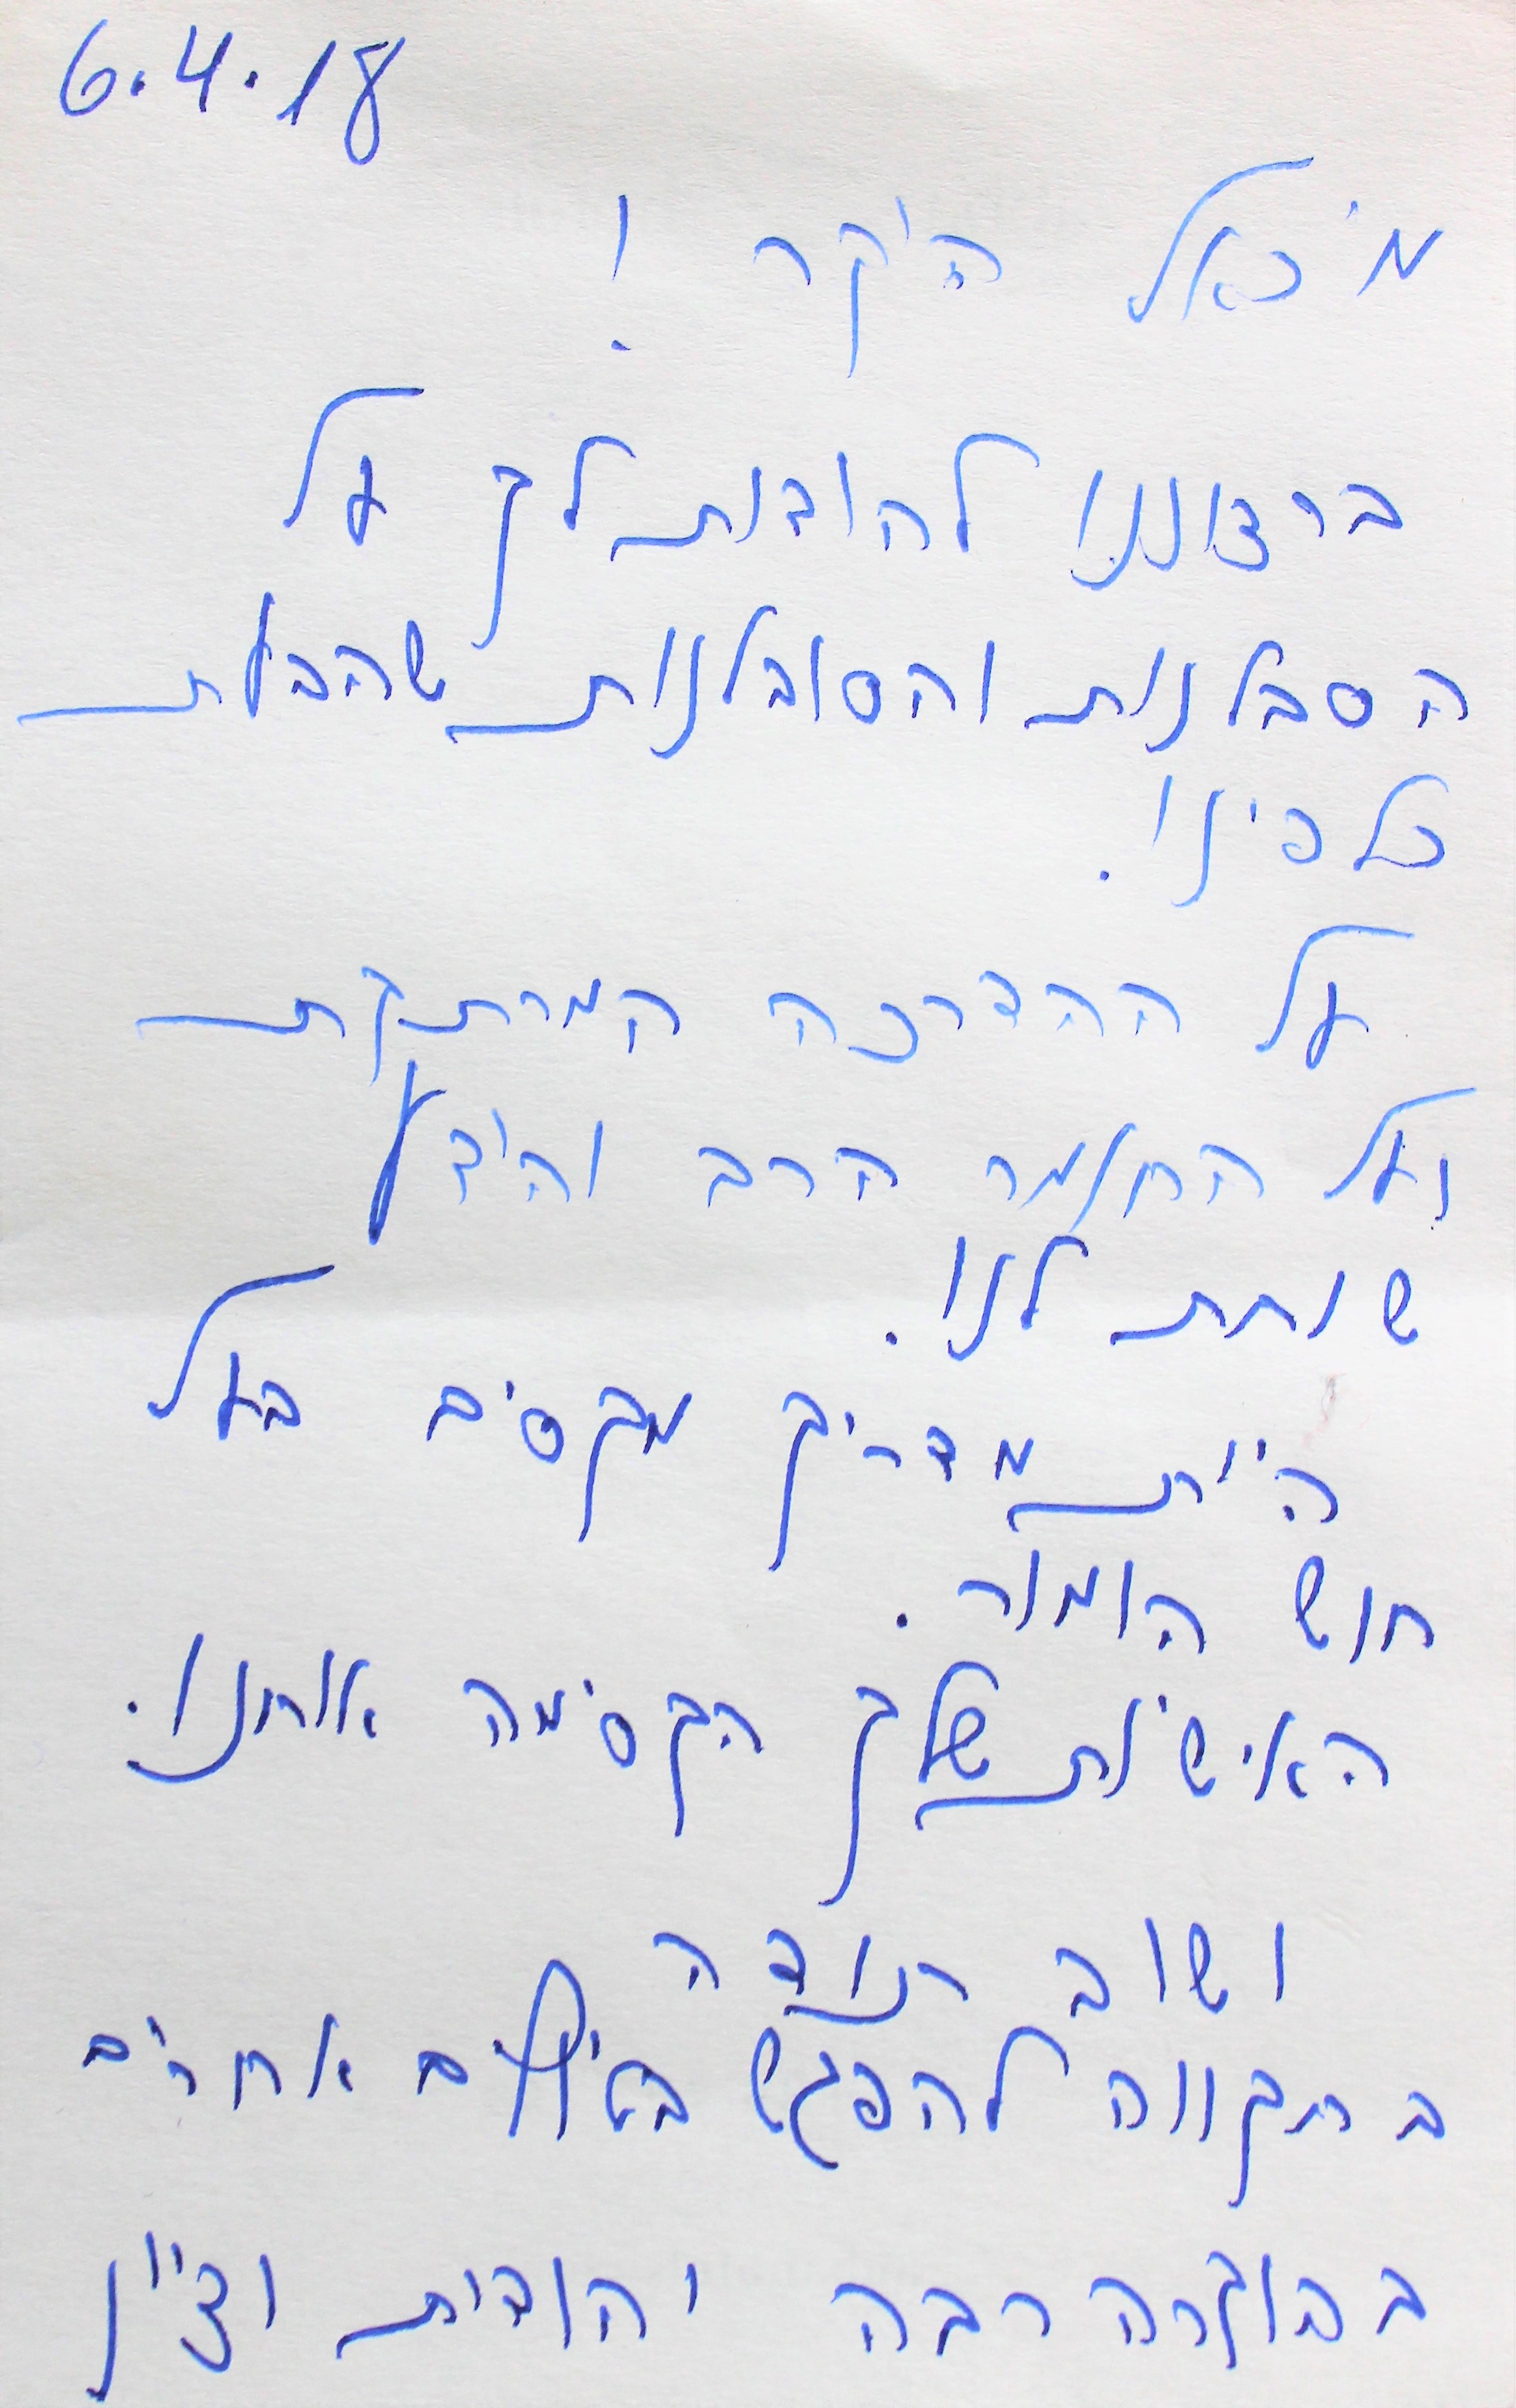 6.4.18
מיכאל היקר !
ברצוננו להודות לך על
הסבלנות והסובלנות שהבעת
כלפינו.
על ההדרכה המרתקת
ועל החומר הרב והידע
שנתת לנו.
היית מדריך מקסים בעל
חוש הומור.
האישיות שלך הקסימה אותנו.
ושוב תודה
בתקווה להפגש בטיולים אחרים
בהוקרה רבה יהודית וציון